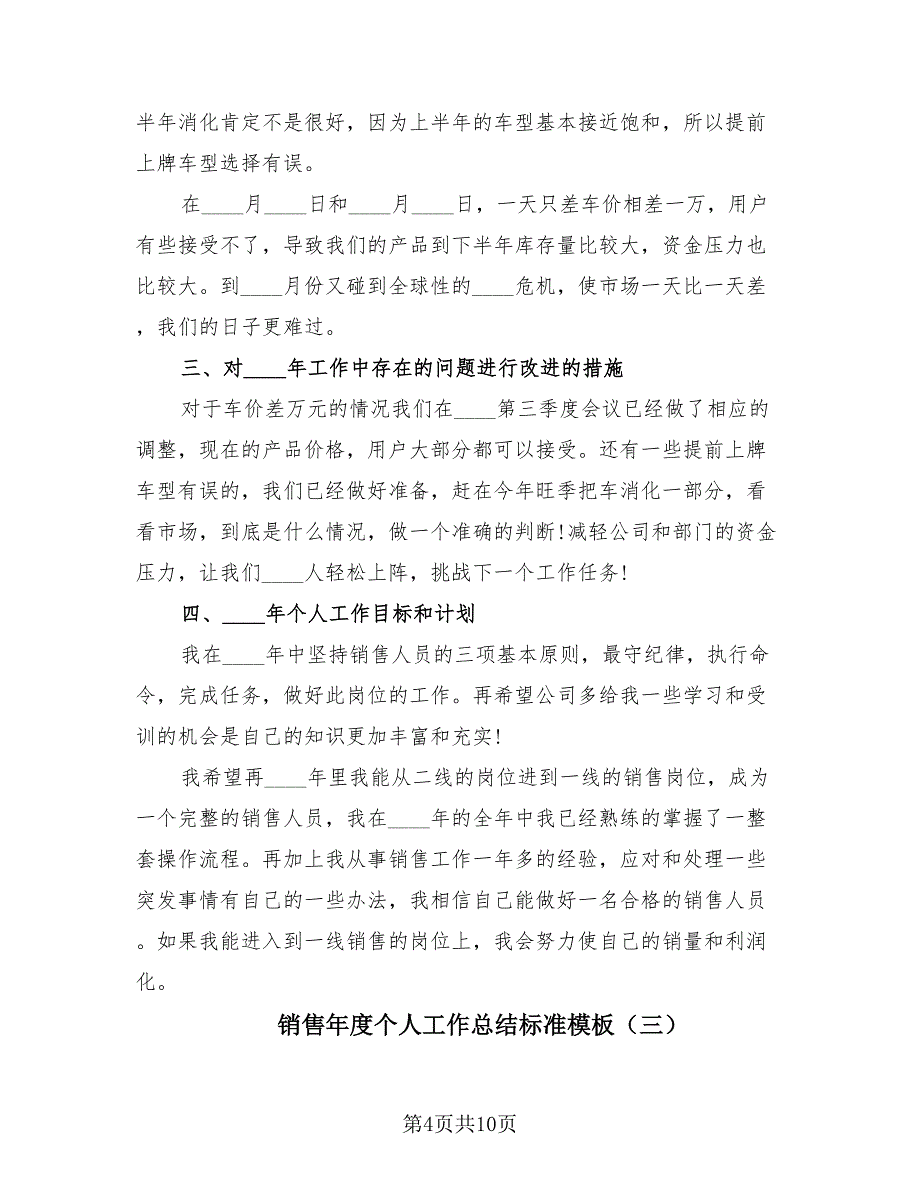 半年消化肯定不是很好，因为上半年的车型基本接近饱和，所以提前
上牌车型选择有误。
在____月____日和____月____日，一天只差车价相差一万，用户
有些接受不了，导致我们的产品到下半年库存量比较大，资金压力也
比较大。到____月份又碰到全球性的____危机，使市场一天比一天差
，我们的日子更难过。
三、对____年工作中存在的问题进行改进的措施
对于车价差万元的情况我们在____第三季度会议已经做了相应的
调整，现在的产品价格，用户大部分都可以接受。还有一些提前上牌
车型有误的，我们已经做好准备，赶在今年旺季把车消化一部分，看
看市场，到底是什么情况，做一个准确的判断!减轻公司和部门的资金
压力，让我们____人轻松上阵，挑战下一个工作任务!
四、____年个人工作目标和计划
我在____年中坚持销售人员的三项基本原则，最守纪律，执行命
令，完成任务，做好此岗位的工作。再希望公司多给我一些学习和受
训的机会是自己的知识更加丰富和充实!
我希望再____年里我能从二线的岗位进到一线的销售岗位，成为
一个完整的销售人员，我在____年的全年中我已经熟练的掌握了一整
套操作流程。再加上我从事销售工作一年多的经验，应对和处理一些
突发事情有自己的一些办法，我相信自己能做好一名合格的销售人员
。如果我能进入到一线销售的岗位上，我会努力使自己的销量和利润
化。
销售年度个人工作总结标准模板（三）
第4页共10页